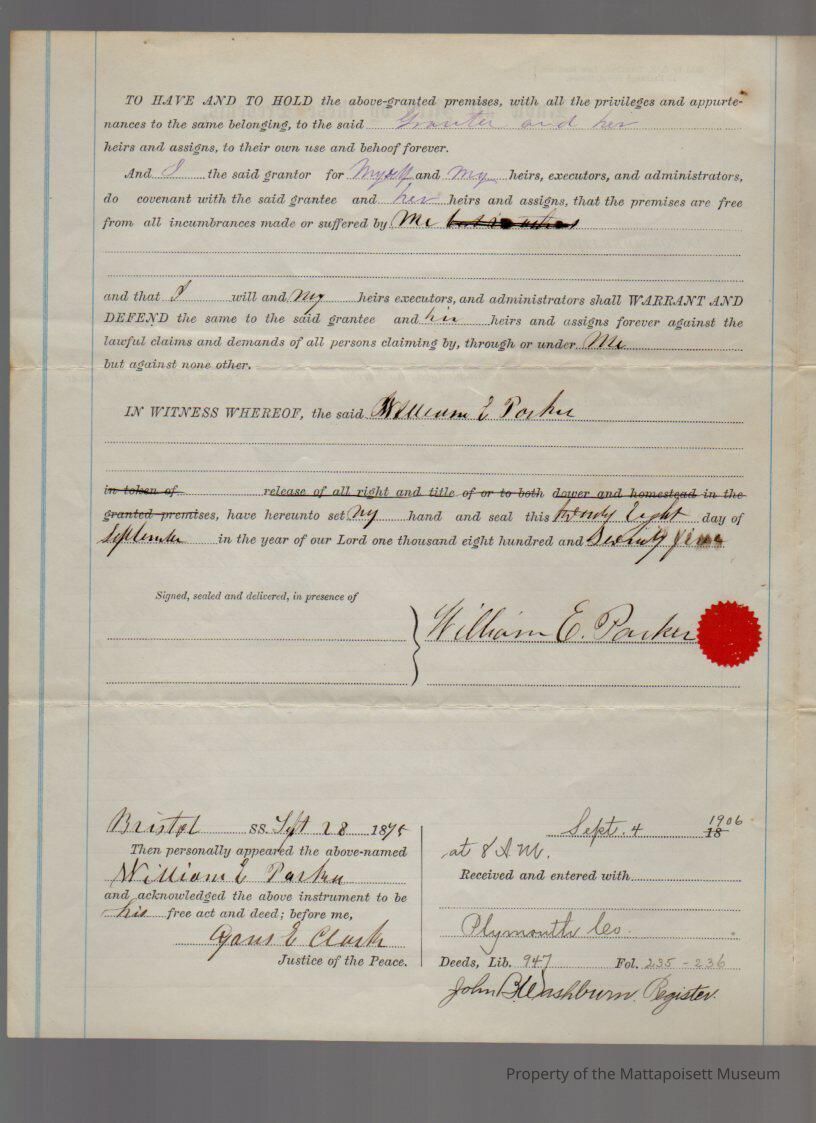 TO HAVE AND TO HOLD the above-granted premises, with all the privileges and appurte-
nances to the same belonging, to the said Grantee and her
heirs and assigns, to their own use and behoof forever.
And I the said grantor for Myself and My heirs, executors, and administrators,
do covenant with the said grantee and her heirs and assigns, that the premises are free
from all incumbrances made or suffered by Me
and that I will and My heirs executors, and administrators shall WARRANT AND
DEFEND the same to the said grantee and her heirs and assigns forever against the
lawful claims and demands of all persons claiming by, through or under Me
but against none other.
IN WITNESS WHEREOF, the said William E Parker
in token of release of all right and title of or to both dower and homestead in the
granted premises, have hereunto set My hand and seal this twenty Eight day of
September in the year of our Lord one thousand eight hundred and Seventy five
Signed, sealed and delivered, in presence of
William E. Parker
Bristol SS. Sept 28 1875
Then personally appeared the above-named
William E Parker
and acknowledged the above instrument to be
his free act and deed; before me,
E Clark
Justice of the Peace.
Sept. 4 1906
18
at 8 A.M.
Received and entered with
Plymouth Co.
Deeds, Lib. 947 Fol. 235 - 236
John B. Washburn Register.
Property of the Mattapoisett Museum